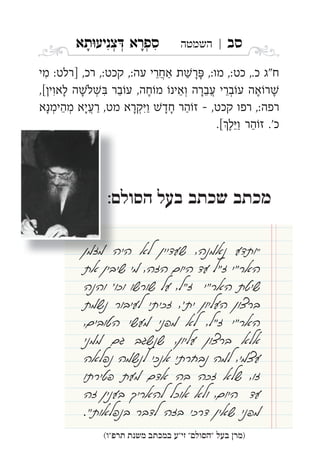 סב | השמטה ספרא דצניעותא
ח"ג כ., כט:, מו:, פָּרָשַׁת אַחֲרֵי עה:, קכט:, רכ, [רלט: מִי
שֶׁרוֹאֶה עוֹבְרֵי עֲבֵרָה וְאֵינוֹ מוֹחֶה, עוֹבֵר בִּשְׁלֹשָׁה לָאוִין],
רפה:, רפו קכט, - זוֹהַר חָדָשׁ וַיִּקְרָא מט, רַעְיָא מְהֵימְנָא
כ'. זוֹהַר וַיֵּלֶךְ].
מכתב שכתב בעל הסולם:
"ותדע נאמנה, שעדיין לא היה מזמן
האר"י ז"ל עד היום הזה, מי שיבין את
שיטת האר"י ז"ל, על שורשו וכו' והנה
ברצון העליון ית', זכיתי לעיבור נשמת
האר"י ז"ל, לא מפני מעשי הטובים,
אלא ברצון עליון, שנשגב גם ממני
עצמי, למה נבחרתי אנכי לנשמה נפלאה
זו, שלא זכה בה אדם מעת פטירתו
עד היום, ולא אוכל להאריך בענין זה
מפני שאין דרכי בזה לדבר בנפלאות".
(מרן בעל "הסולם" זי"ע במכתב משנת תרפ"ז)